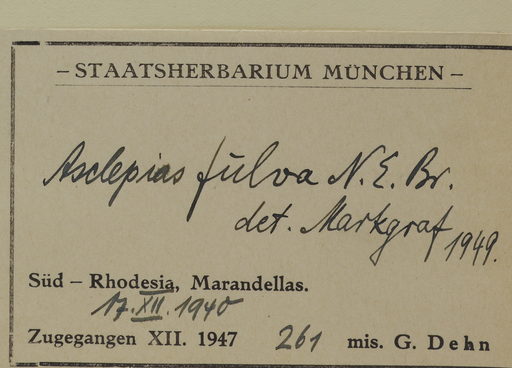 – STAATSHERBARIUM MÜNCHEN –
Asclepias fulva N. E. Br.
det. Markgraf 1949.
Süd – Rhodesia, Marandellas.
17. XII. 1940
Zugegangen XII. 1947 261 mis. G. Dehn